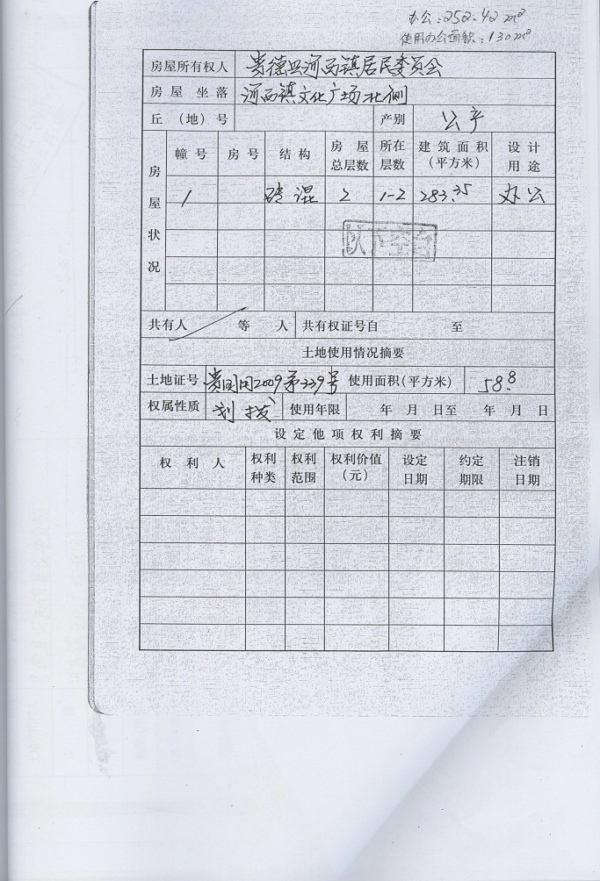 办公：252.42 m²
使用办公面积：130m²
房屋所有权人 贵德县河西镇居民委员会
房屋坐落 河西镇文化广场北侧
丘（地）号 产别 公产
房屋状况
幢号 房号 结构 房屋总层数 所在层数 建筑面积（平方米） 设计用途
1 砖混 2 1-2 283.35 办公
以下空白
共有人 等 人 共有权证号自 至
土地使用情况摘要
土地证号 贵国用2009第339号 使用面积(平方米) 58.8
权属性质 划拨 使用年限 年 月 日至 年 月 日
设定他项权利摘要
权利人 权利种类 权利范围 权利价值（元） 设定日期 约定期限 注销日期